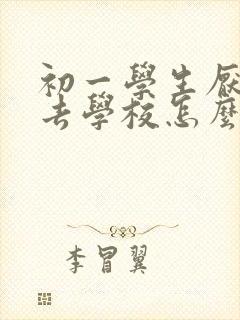 初一學生厭
去學校怎麼
李冒翼